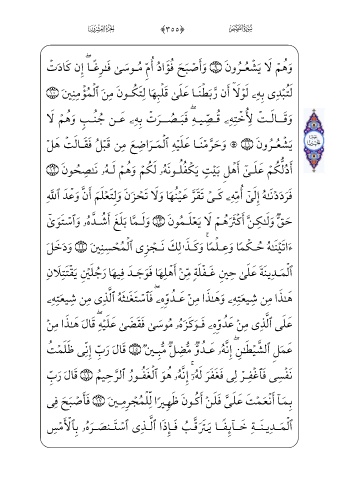 سُورَةُ القَصَصِ ﴿٣٥٥﴾ الجُزءُ العِشْرُونَ
وَهُمْ لَا يَشْعُرُونَ ۝ وَأَصْبَحَ فُؤَادُ أُمِّ مُوسَىٰ فَـٰرِغًا ۖ إِن كَادَتْ
لَتُبْدِى بِهِۦ لَوْلَآ أَن رَّبَطْنَا عَلَىٰ قَلْبِهَا لِتَكُونَ مِنَ ٱلْمُؤْمِنِينَ ۝
وَقَالَتْ لِأُخْتِهِۦ قُصِّيهِ ۖ فَبَصُرَتْ بِهِۦ عَن جُنُبٍ وَهُمْ لَا
يَشْعُرُونَ ۝ ۞ وَحَرَّمْنَا عَلَيْهِ ٱلْمَرَاضِعَ مِن قَبْلُ فَقَالَتْ هَلْ
أَدُلُّكُمْ عَلَىٰٓ أَهْلِ بَيْتٍ يَكْفُلُونَهُۥ لَكُمْ وَهُمْ لَهُۥ نَـٰصِحُونَ ۝
فَرَدَدْنَـٰهُ إِلَىٰٓ أُمِّهِۦ كَىْ تَقَرَّ عَيْنُهَا وَلَا تَحْزَنَ وَلِتَعْلَمَ أَنَّ وَعْدَ ٱللَّهِ
حَقٌّ وَلَـٰكِنَّ أَكْثَرَهُمْ لَا يَعْلَمُونَ ۝ وَلَمَّا بَلَغَ أَشُدَّهُۥ وَٱسْتَوَىٰٓ
ءَاتَيْنَـٰهُ حُكْمًا وَعِلْمًا ۚ وَكَذَٰلِكَ نَجْزِى ٱلْمُحْسِنِينَ ۝ وَدَخَلَ
ٱلْمَدِينَةَ عَلَىٰ حِينِ غَفْلَةٍ مِّنْ أَهْلِهَا فَوَجَدَ فِيهَا رَجُلَيْنِ يَقْتَتِلَانِ
هَـٰذَا مِن شِيعَتِهِۦ وَهَـٰذَا مِنْ عَدُوِّهِۦ ۖ فَٱسْتَغَـٰثَهُ ٱلَّذِى مِن شِيعَتِهِۦ
عَلَى ٱلَّذِى مِنْ عَدُوِّهِۦ فَوَكَزَهُۥ مُوسَىٰ فَقَضَىٰ عَلَيْهِ ۖ قَالَ هَـٰذَا مِنْ
عَمَلِ ٱلشَّيْطَـٰنِ ۖ إِنَّهُۥ عَدُوٌّ مُّضِلٌّ مُّبِينٌ ۝ قَالَ رَبِّ إِنِّى ظَلَمْتُ
نَفْسِى فَٱغْفِرْ لِى فَغَفَرَ لَهُۥٓ ۚ إِنَّهُۥ هُوَ ٱلْغَفُورُ ٱلرَّحِيمُ ۝ قَالَ رَبِّ
بِمَآ أَنْعَمْتَ عَلَىَّ فَلَنْ أَكُونَ ظَهِيرًا لِّلْمُجْرِمِينَ ۝ فَأَصْبَحَ فِى
ٱلْمَدِينَةِ خَآئِفًا يَتَرَقَّبُ فَإِذَا ٱلَّذِى ٱسْتَنصَرَهُۥ بِٱلْأَمْسِ